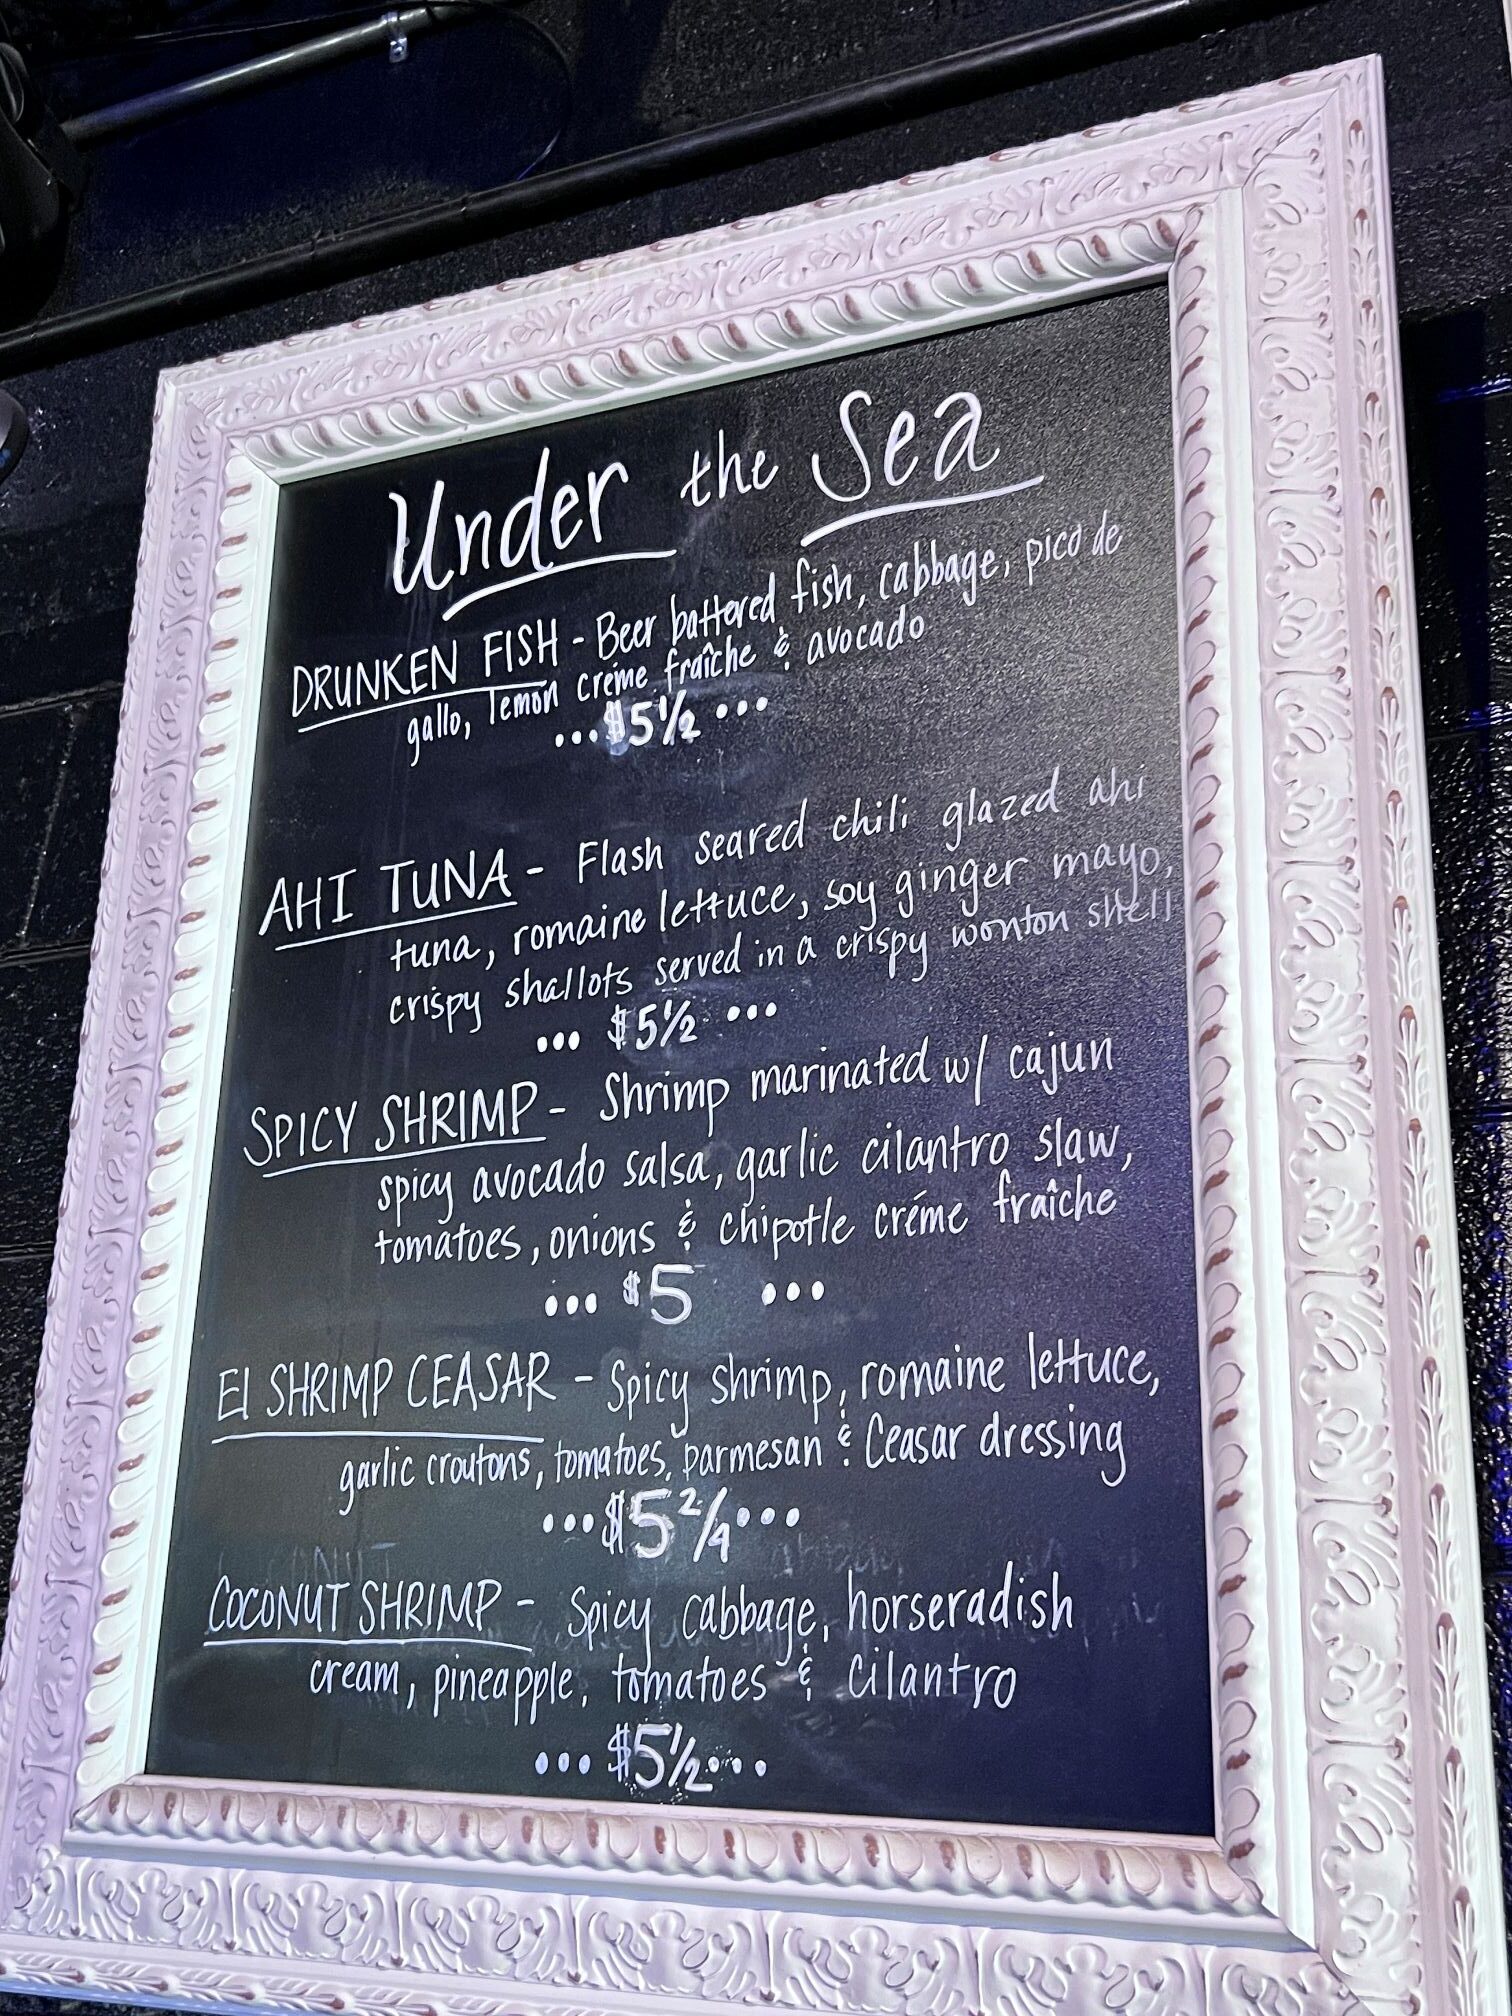 Under the Sea
DRUNKEN FISH - Beer battered fish, cabbage, pico de
gallo, lemon créme fraîche & avocado
...$5½...
AHI TUNA - Flash seared chili glazed ahi
tuna, romaine lettuce, soy ginger mayo,
crispy shallots served in a crispy wonton shell
... $5½ ...
SPICY SHRIMP - Shrimp marinated w/ cajun
spicy avocado salsa, garlic cilantro slaw,
tomatoes, onions & chipotle créme fraîche
... $5 ...
El SHRIMP CEASAR - Spicy shrimp, romaine lettuce,
garlic croutons, tomatoes, parmesan & Ceasar dressing
...$5 2/4...
COCONUT SHRIMP - Spicy cabbage, horseradish
cream, pineapple, tomatoes & cilantro
... $5½...